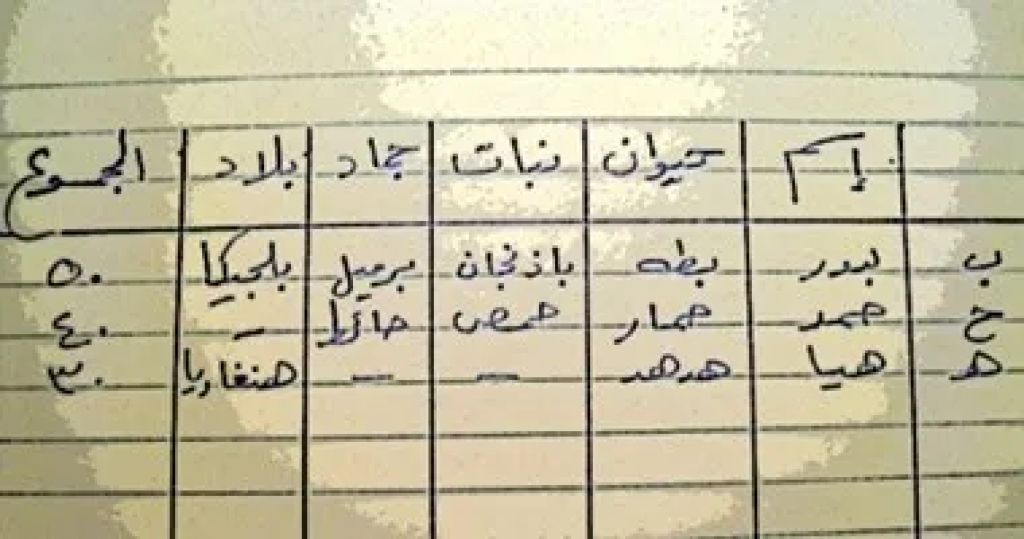 إسم حيوان نبات جماد بلاد المجموع
ب بدر بطه باذنجان برميل بلجيكا ٥٠
ح حمد حمار حمص حائط - ٤٠
هـ هيا هدهد - - هنغاريا ٣٠